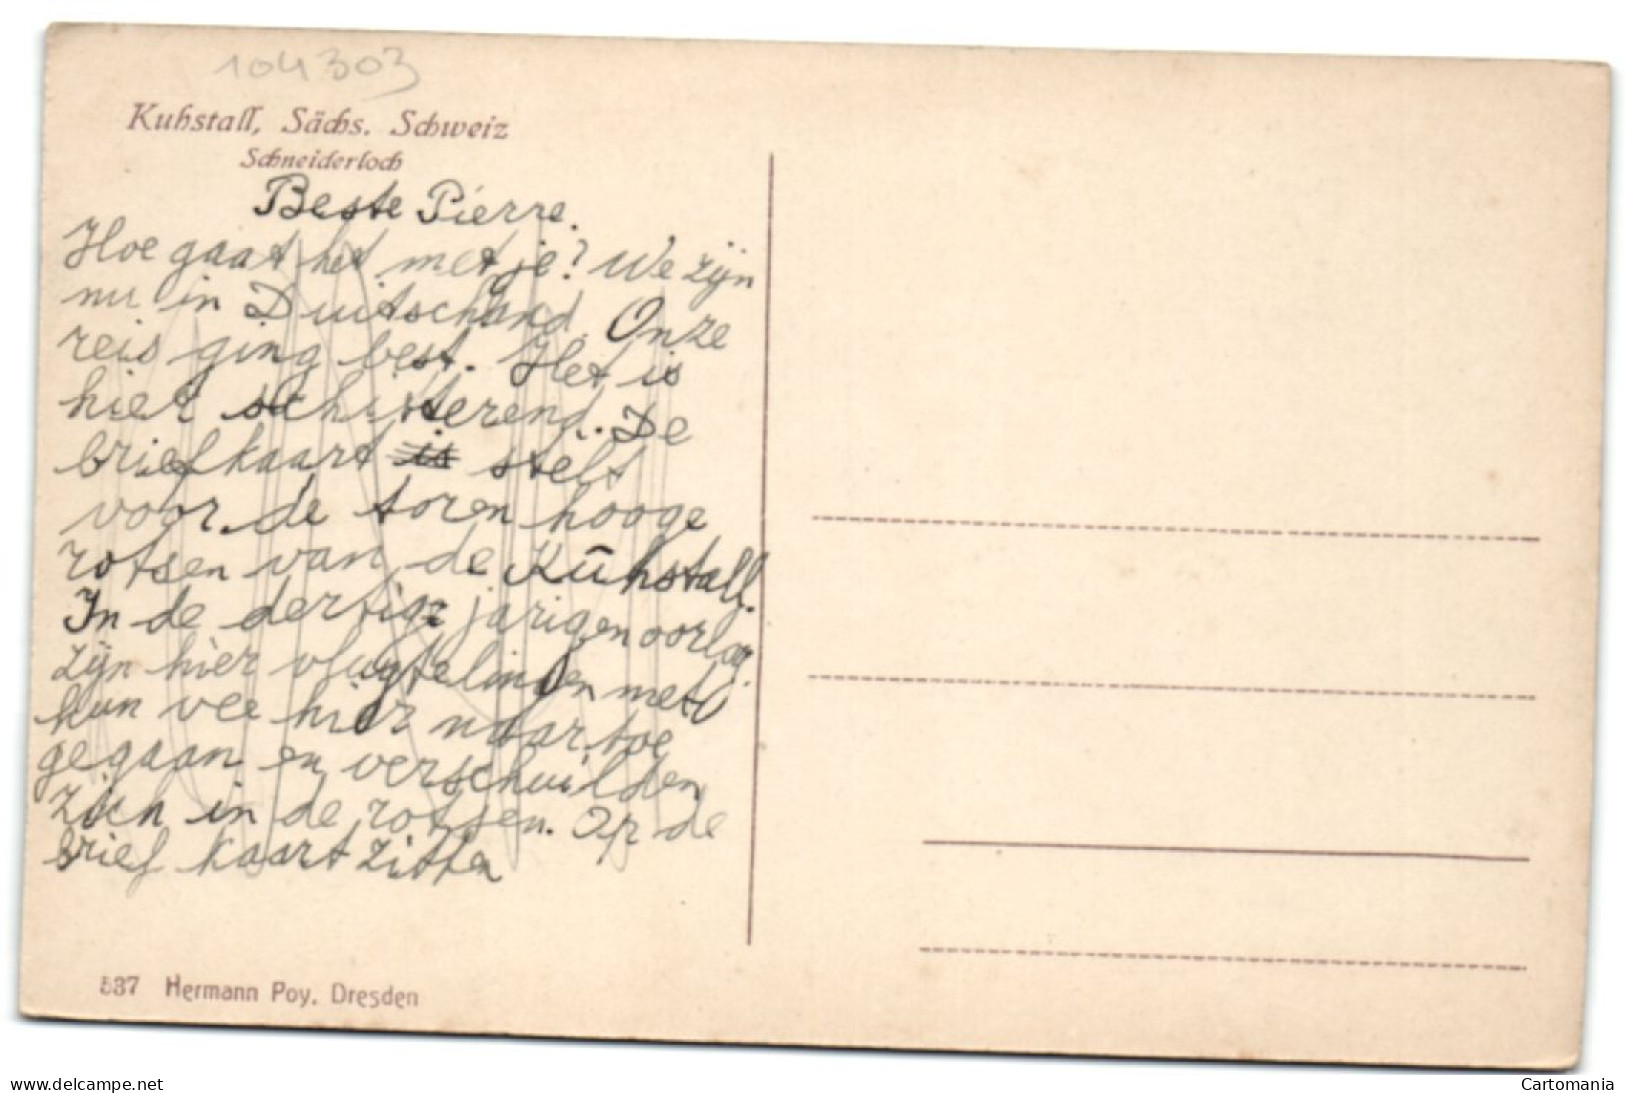 104303
Kuhstall, Sächs. Schweiz
Schneiderloch
Beste Pierre.
Hoe gaat het met je? We zijn
nu in Duitschand. Onze
reis ging best. Het is
hier schitterend. De
briefkaart is stelt
voor de toren hooge
rotsen van de Kūhstall.
In de dertig jarigenoorlog.
zijn hier vlugtelingen met
hun vee hier naar toe
gegaan en verschuilden
zich in de rotsen. Op de
brief kaart zitten
537 Hermann Poy, Dresden
www.delcampe.net
Cartomania